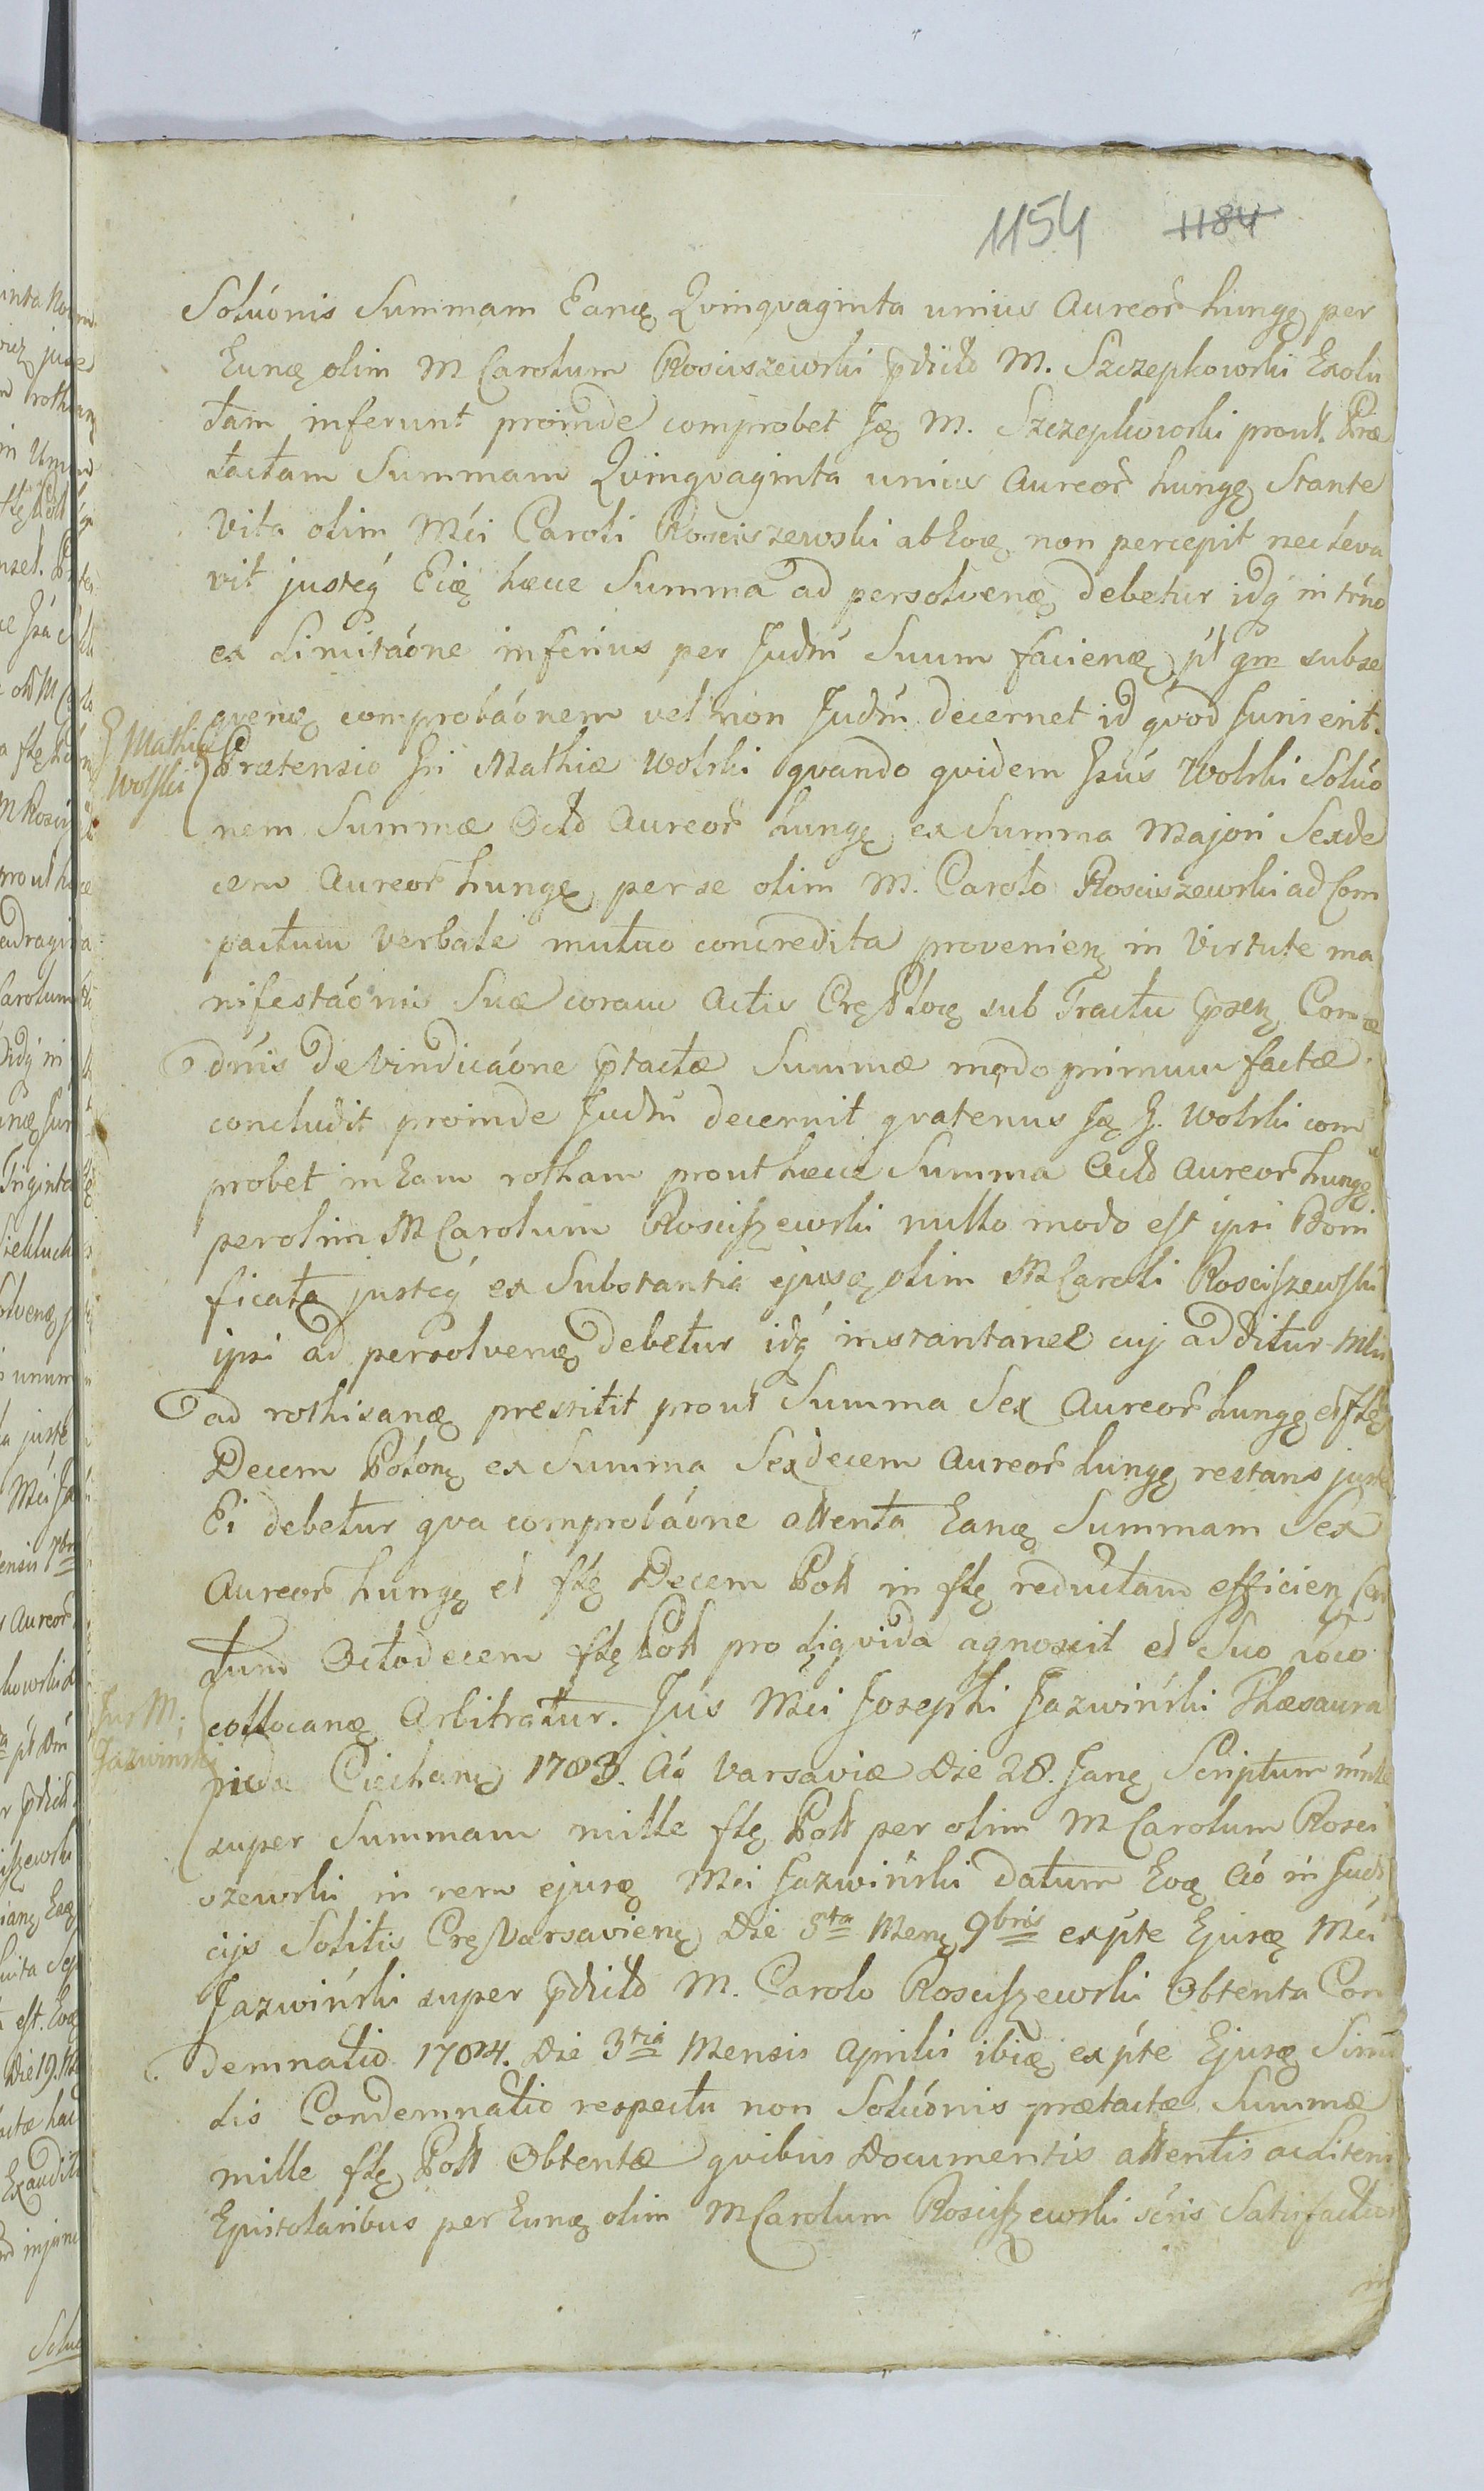 1154 1184
Solúónis Summam Eanę Qvinqvaginta unius Aureoř hungę per
Eunę olim M Carolum Rosciszewski p̄dićło M. Szczepkowski Exolu
tam inferunt proinde comprobet Ję M. Szczepkowski prout Præ
tactam Summam Qvinqvaginta unius Aureoř hungę Stante
Vita olim Mći Caroli Rosciszewski ab Eoę non percepit nec leva
vit justeq́ Eię hæcce Summa ad persolvenę debetur idq́ in tŕno
ex Limitáóne inferius per Judḿ Suum facienę pt́ qm subse
qvenę comprobáónem vel non Judḿ decernet id qvod Juris erit.
G Mathiæ
Wolski
Prætensio Gń Mathiæ Wolski qvando qvidem Jpśus Wolski Solúó
nem Summæ Octo Aureoř hungę ex Summa Majori Sexde
cem Aureoř hungę per se olim M. Carolo Rosciszewski ad Com
pactum Verbale mutuo concredita provenienę in Virtute ma
nifestáónis Suæ coram Actis Crę Płocę sub Tractu p̄senę Con
dńis de Vindicáóne p̄tactæ Summæ modo primum factæ
concludit proinde Judḿ decernit qvatenus Ję G. Wolski com
probet in Eam rotham prout hæcce Summa Octo Aureoř hungę
per olim M Carolum Rosciszewski nullo modo est ipsi Boni
ficata justeq́ ex Substantia ejusę olim M Caroli Rosciszewski
ipsi ad persolvenę debetur idq́ instantanee cuj additur
ad rothisanę prestitit prout Summa Sex Aureoř hungę et flę
Decem Polonę ex Summa Sexdecem Aureoř hungę restans juste
Ei debetur qva comprobáóne attenta Eanę Summam Sex
Aureoř hungę et flę Decem Poll in flę reductam efficienę Cen
tum Octodecem flę Poll pro liqvida agnoscit et Suo loco
Jus M.
Jazwiński
collocanę Arbitratur. Jus Mći Josephi Jazwiński Thæsaura
ridæ Ciechanę 1783. Aó Varsaviæ Die 28. Janę Scriptum
super Summam mille flę Poll per olim M Carolum Rosci
szewski in rem ejusę Mći Jazwiński datum Eoę Aó in Judi
cijs Solitis Crę Varsavienę Die 5ta Menę 9bris ex pte Ejusę Mći
Jazwiński super p̄dićło M. Carolo Rosciszewski Obtenta Con
demnatio 1784. Die 3tia Mensis Aprilis ibię ex pte Ejusę Simi
lis Condemnatio respectu non Solúónis prætactæ Summæ
mille flę Poll Obtentæ qvibus Documentis attentis ac literis
Epistolaribus per Eunę olim M Carolum Rosciszewski śćris Satisfaction